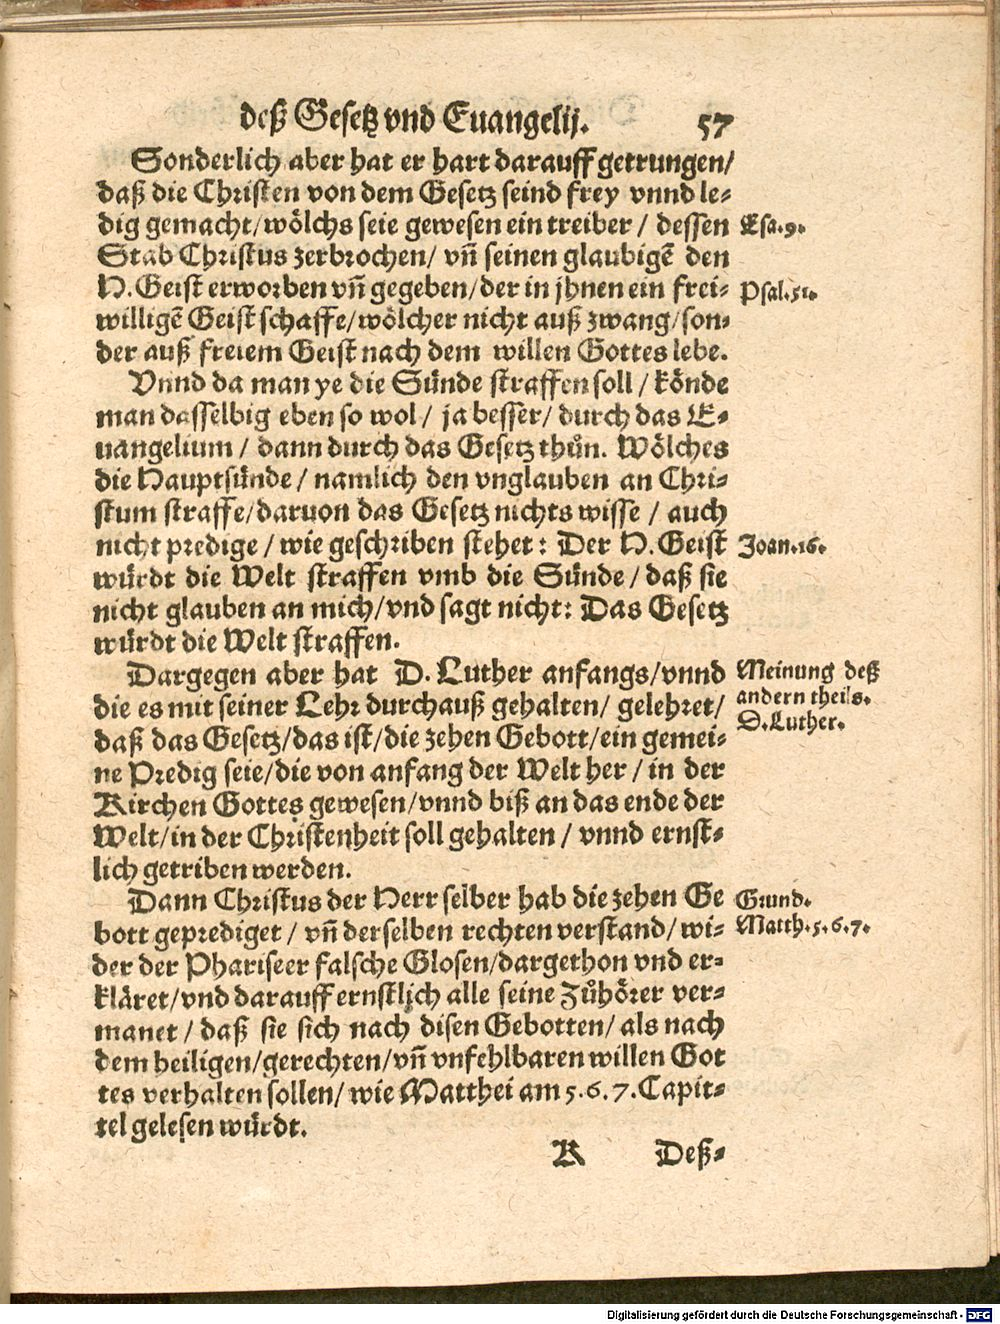 deß Gesetz vnd Euangelij. 57
Sonderlich aber hat er hart darauff getrungen/
daß die Christen von dem Gesetz seind frey vnnd le-
dig gemacht/wölchs seie gewesen ein treiber / dessen Esa.9.
Stab Christus zerbrochen/ vñ seinen glaubigẽ den
H. Geist erworben vñ gegeben/der in jhnen ein frei- Psal.51.
willigẽ Geist schaffe/wölcher nicht auß zwang/son-
der auß freiem Geist nach dem willen Gottes lebe.
Vnnd da man ye die Sünde straffen soll / könde
man dasselbig eben so wol / ja besser/ durch das E-
uangelium / dann durch das Gesetz thůn. Wölches
die Hauptsünde / namlich den vnglauben an Chri-
stum straffe/daruon das Gesetz nichts wisse / auch
nicht predige / wie geschriben stehet: Der H. Geist Joan.16.
würdt die Welt straffen vmb die Sünde / daß sie
nicht glauben an mich/vnd sagt nicht: Das Gesetz
würdt die Welt straffen.
Dargegen aber hat D. Luther anfangs/vnnd Meinung deß
die es mit seiner Lehr durchauß gehalten/ gelehret/ andern theils.
D. Luther.
daß das Gesetz/das ist/die zehen Gebott/ein gemei-
ne Predig seie/die von anfang der Welt her / in der
Kirchen Gottes gewesen/vnnd biß an das ende der
Welt/in der Christenheit soll gehalten / vnnd ernst-
lich getriben werden.
Dann Christus der Herr selber hab die zehen Ge Grund.
bott geprediget / vñ derselben rechten verstand/ wi- Matth.5.6.7.
der der Phariseer falsche Glosen/dargethon vnd er-
kläret/vnd darauff ernstlich alle seine Zůhörer ver-
manet / daß sie sich nach disen Gebotten/ als nach
dem heiligen/gerechten/vñ vnfehlbaren willen Got
tes verhalten sollen/ wie Matthei am 5.6.7.Capit-
tel gelesen würdt.
K Deß-
Digitalisierung gefördert durch die Deutsche Forschungsgemeinschaft - DFG